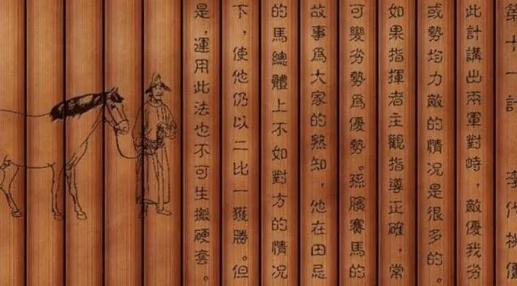 第十一計　李代桃僵
此計講出兩軍對峙，敵優我劣
或勢均力敵的情况是很多的。
如果指揮者主觀指導正確，常
可變劣勢爲優勢。孫臏賽馬的
故事爲大家的熟知，他在田忌
的馬總體上不如對方的情况
下，使他仍以二比一獲勝。但
是，運用此法也不可生搬硬套。